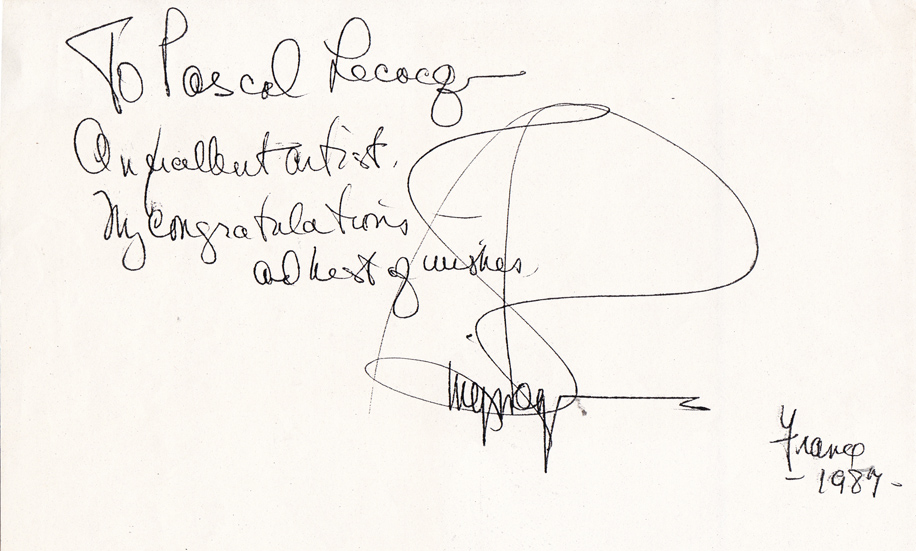 To Pascal Lecocq
An excellent artist.
My congratulations
ad best of wishes.
France
- 1987 -